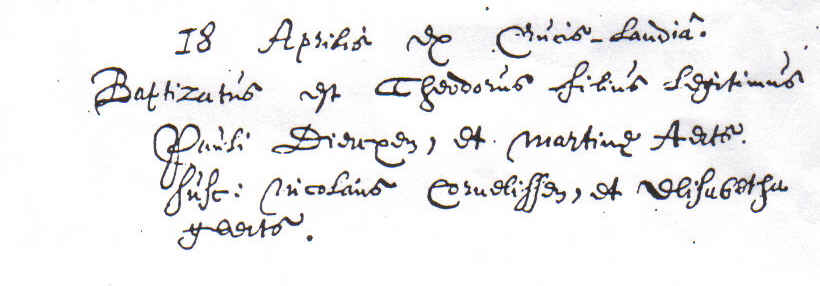 18 Aprilis ex Crucis-landiâ.
Baptizatus est Theodorus filius legitimus
Pauli Dierxen, et martinę Aerts.
susc: Nicolaus Cornelissen, et Elisabetha
geerts.